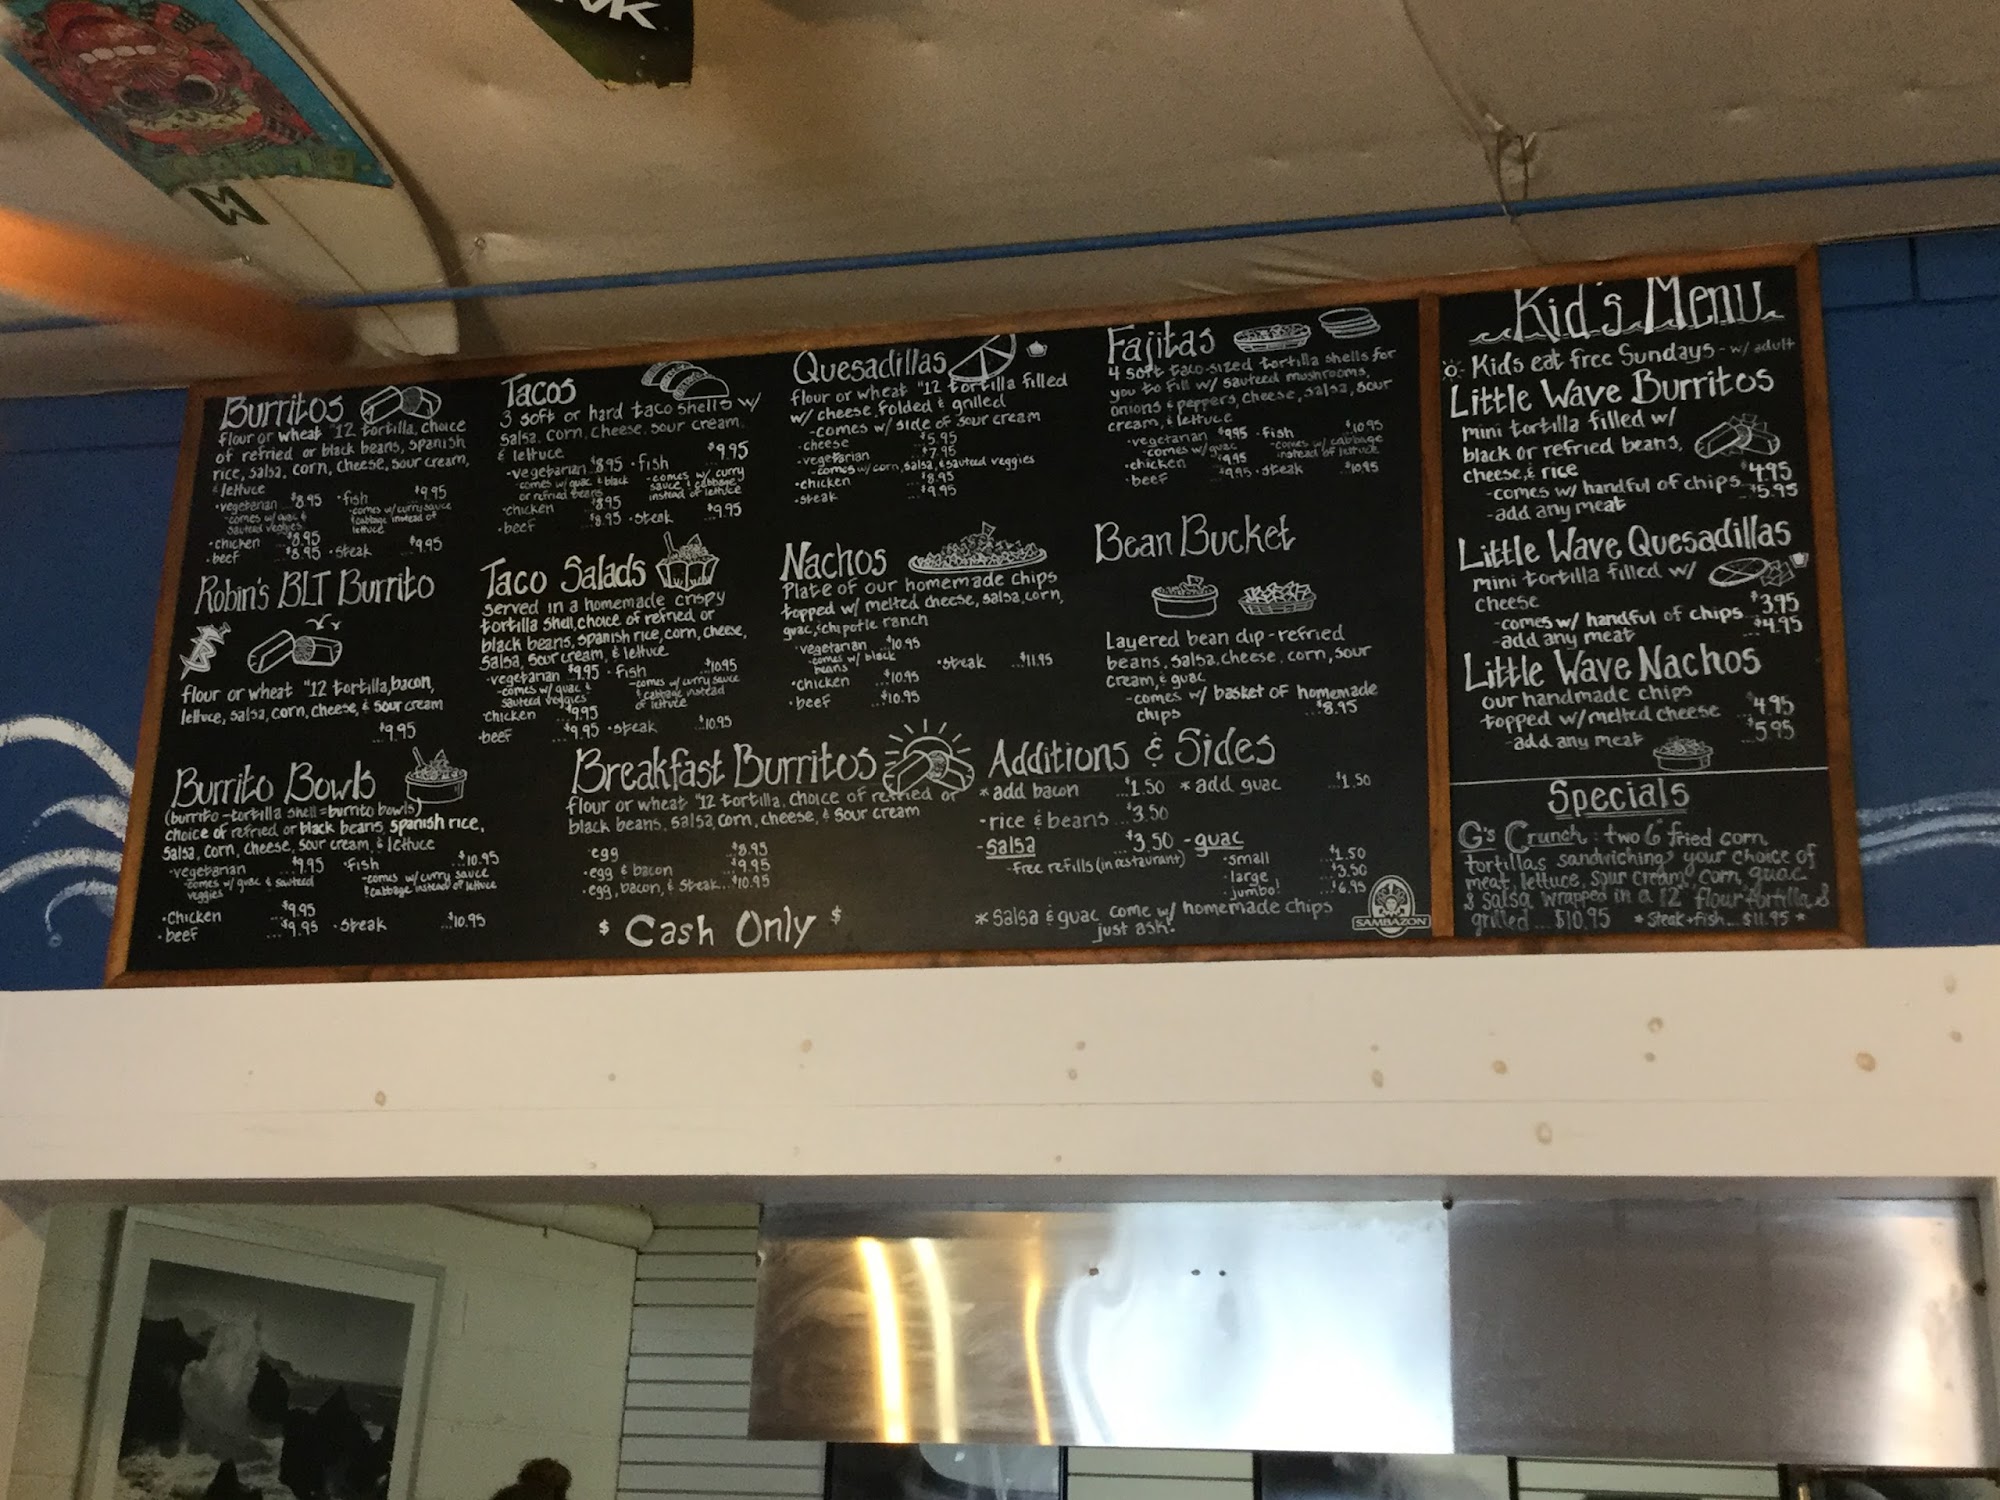 Burritos
flour or wheat "12 tortilla, choice
of refried or black beans, spanish
rice, salsa, corn, cheese, sour cream,
& lettuce
·vegetarian ...$8.95 ·fish ...$9.95
-comes w/ guac & sauteed veggies
-comes w/ curry sauce & cabbage instead of lettuce
·chicken ...$8.95
·beef ...$8.95 ·steak ...$9.95
Robin's BLT Burrito
flour or wheat "12 tortilla, bacon,
lettuce, salsa, corn, cheese, & sour cream
...$9.95
Burrito Bowls
(burrito - tortilla shell = burrito bowls)
choice of refried or black beans, spanish rice,
salsa, corn, cheese, sour cream, & lettuce
·vegetarian ...$9.95 ·fish ...$10.95
-comes w/ guac & sauteed veggies
-comes w/ curry sauce & cabbage instead of lettuce
·chicken ...$9.95
·beef ...$9.95 ·steak ...$10.95
Tacos
3 soft or hard taco shells w/
salsa, corn, cheese, sour cream
& lettuce
·vegetarian $8.95 ·fish $9.95
-comes w/ guac & black or refried beans
-comes w/ curry sauce & cabbage instead of lettuce
·chicken ...$8.95
·beef ...$8.95 ·steak ...$9.95
Taco Salads
served in a homemade crispy
tortilla shell, choice of refried or
black beans, spanish rice, corn, cheese,
salsa, sour cream, & lettuce
·vegetarian $9.95 ·fish ...$10.95
-comes w/ guac & sauteed veggies
-comes w/ curry sauce & cabbage instead of lettuce
·chicken ...$9.95
·beef ...$9.95 ·steak ...$10.95
Breakfast Burritos
flour or wheat "12 tortilla, choice of refried or
black beans, salsa, corn, cheese, & sour cream
·egg ...$8.95
·egg & bacon ...$9.95
·egg, bacon, & steak...$10.95
$ Cash Only $
Quesadillas
flour or wheat "12 tortilla filled
w/ cheese, folded & grilled
-comes w/ side of sour cream
·cheese ...$5.95
·vegetarian ...$7.95
-comes w/ corn, salsa, & sauteed veggies
·chicken ...$8.95
·steak ...$9.95
Nachos
Plate of our homemade chips
topped w/ melted cheese, salsa, corn,
guac, & chipotle ranch
·vegetarian ...$10.95
-comes w/ black beans
·steak ...$11.95
·chicken ...$10.95
·beef ...$10.95
Fajitas
4 soft taco-sized tortilla shells for
you to fill w/ sauteed mushrooms,
onions & peppers, cheese, salsa, sour
cream, & lettuce
·vegetarian $9.95 ·fish ...$10.95
-comes w/ guac
-comes w/ cabbage instead of lettuce
·chicken ...$9.95
·beef ...$9.95 ·steak ...$10.95
Bean Bucket
Layered bean dip - refried
beans, salsa, cheese, corn, sour
cream, & guac
-comes w/ basket of homemade
chips ...$8.95
Additions & Sides
* add bacon ...$1.50 * add guac ...$1.50
- rice & beans ...$3.50
- salsa ...$3.50 - guac
-Free refills (in restaurant)
·small ...$1.50
·large ...$3.50
·jumbo! ...$6.95
* Salsa & guac come w/ homemade chips
just ask!
SAMBAZON
Kid's Menu
Kids eat free Sundays - w/ adult
Little Wave Burritos
mini tortilla filled w/
black or refried beans,
cheese, & rice ...$4.95
-comes w/ handful of chips
-add any meat ...$5.95
Little Wave Quesadillas
mini tortilla filled w/
cheese ...$3.95
-comes w/ handful of chips
-add any meat ...$4.95
Little Wave Nachos
our handmade chips
topped w/ melted cheese ...$4.95
-add any meat ...$5.95
Specials
G's Crunch: two 6" fried corn
tortillas sandwiching your choice of
meat, lettuce, sour cream, corn, guac
& salsa wrapped in a 12" flour tortilla &
grilled ... $10.95 * Steak + fish... $11.95 *